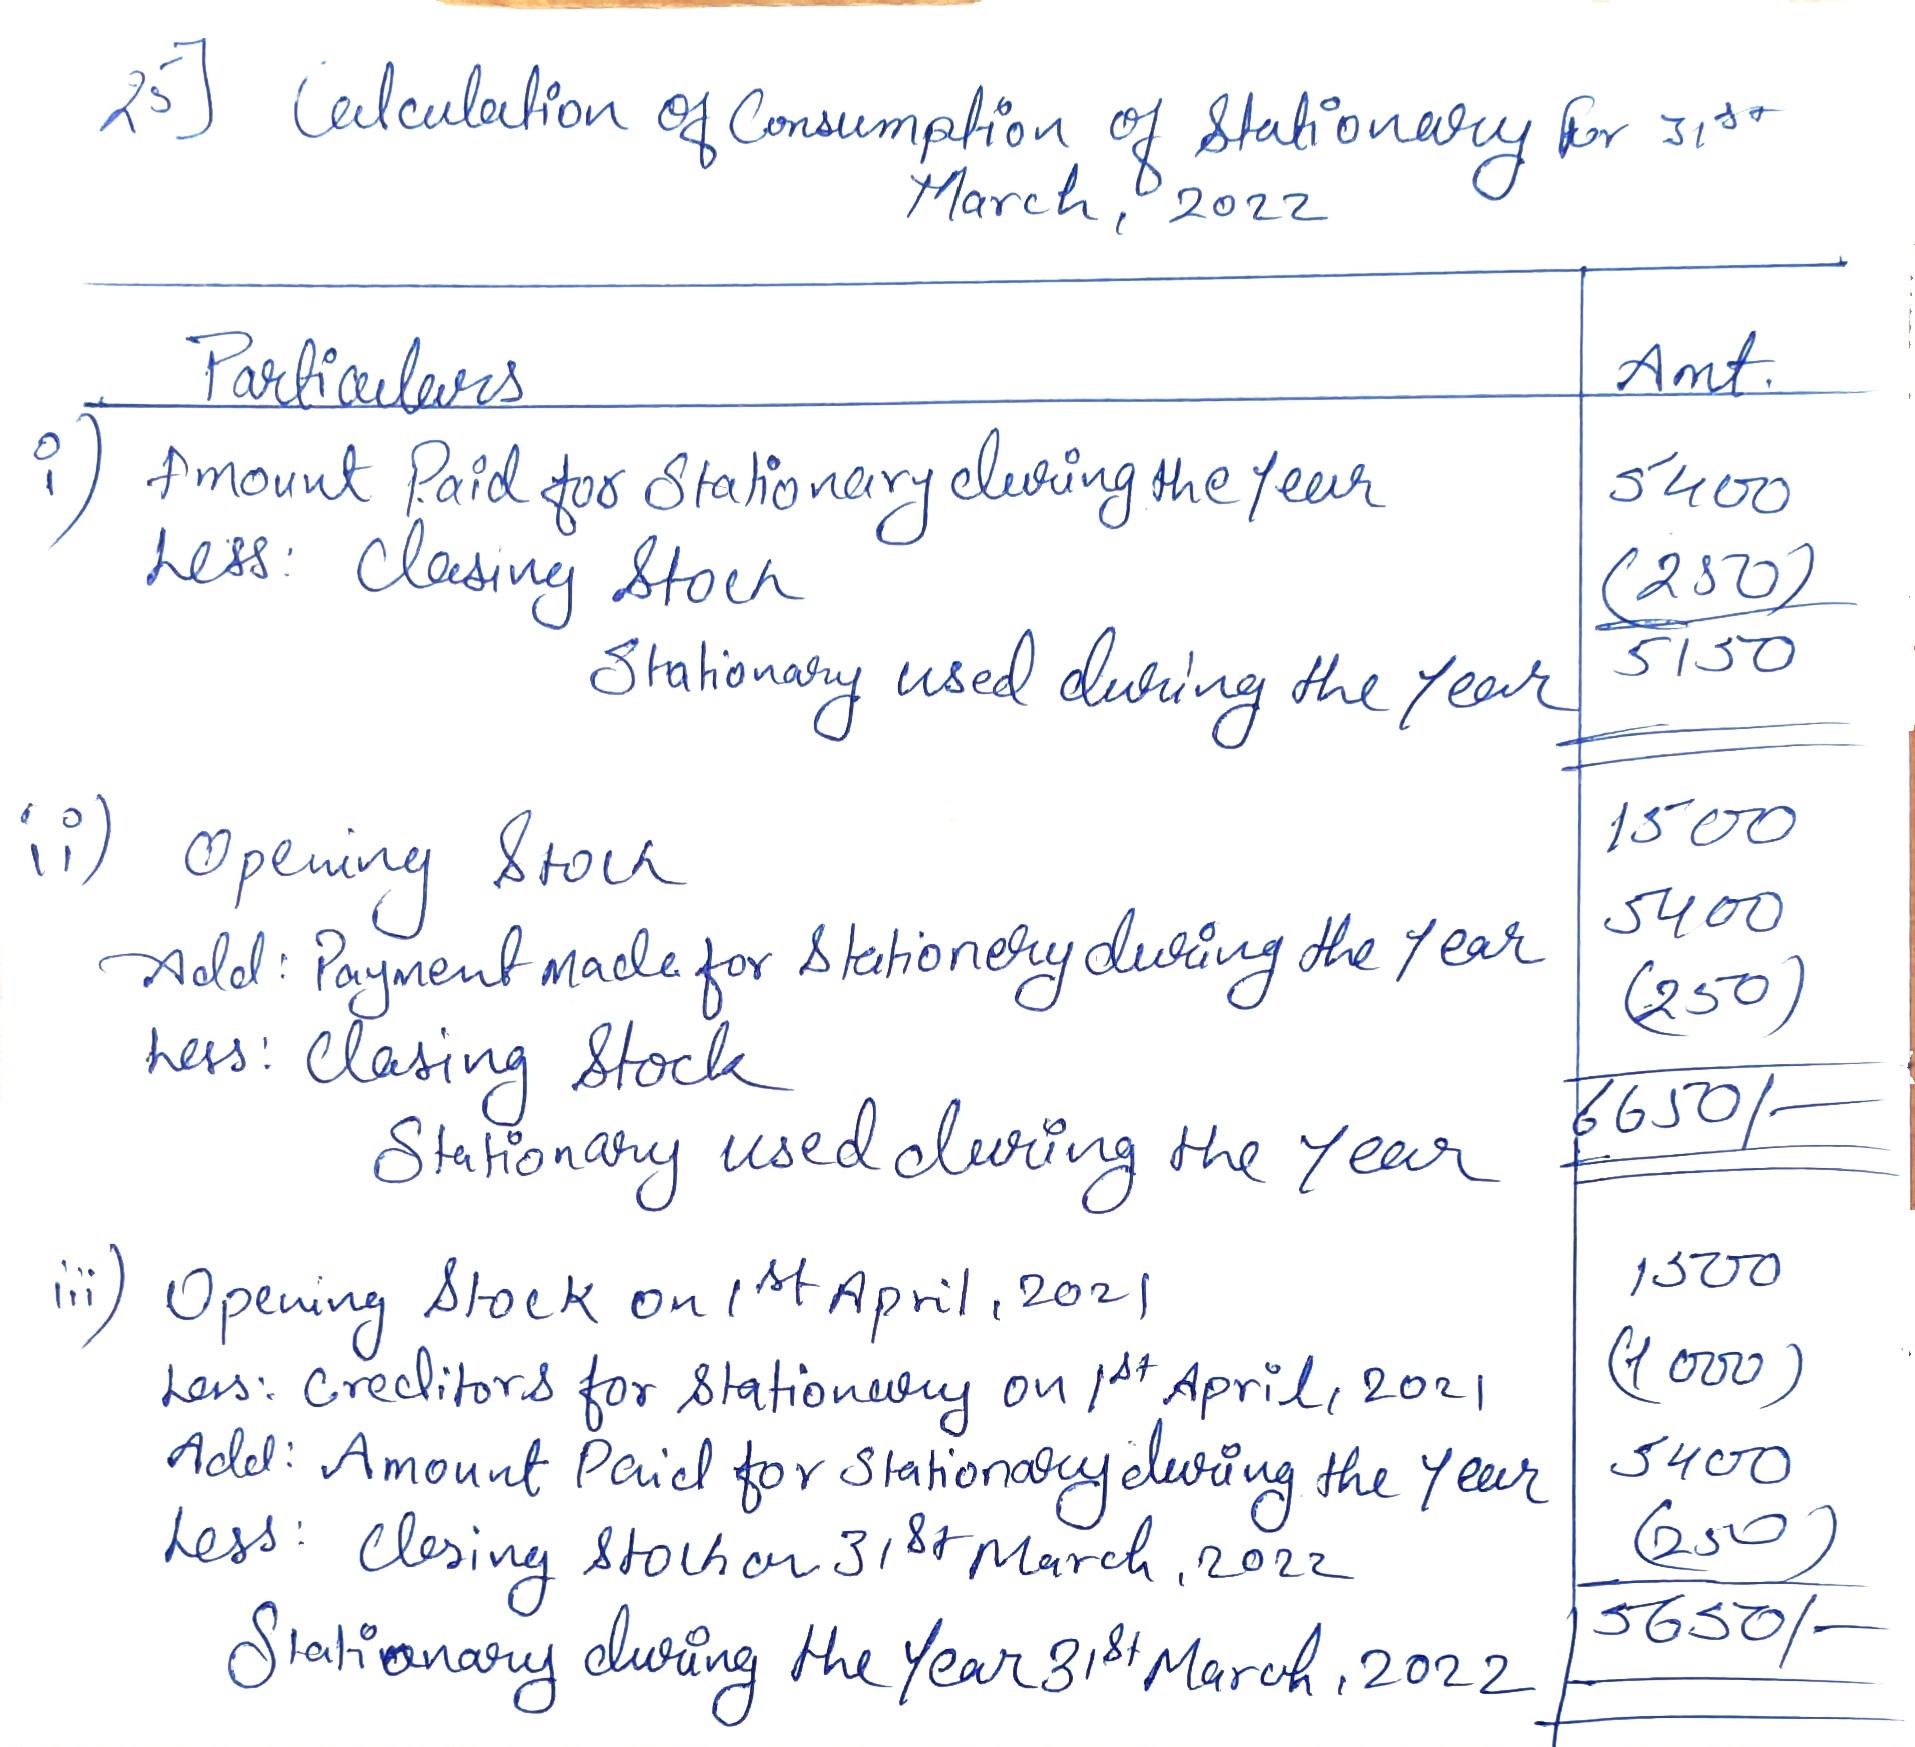 25] Calculation of Consumption of Stationary for 31st
March, 2022
Particulars Amt.
i) Amount Paid for Stationary during the Year 5400
Less: Closing Stock (250)
Stationary used during the Year 5150
ii) Opening Stock 1500
Add: Payment made for Stationery during the Year 5400
Less: Closing Stock (250)
Stationary used during the Year 6650/-
iii) Opening Stock on 1st April, 2021 1500
Less: Creditors for Stationary on 1st April, 2021 (1000)
Add: Amount Paid for Stationary during the Year 5400
Less: Closing Stock on 31st March, 2022 (250)
Stationary during the Year 31st March, 2022 5650/-